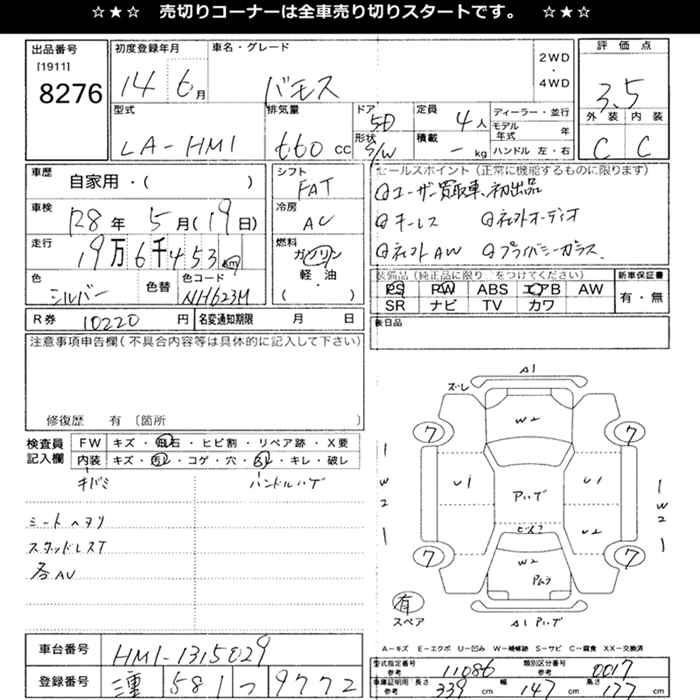 ☆★☆ 売切りコーナーは全車売り切りスタートです。 ☆★☆
出品番号
[1911]
8276
初度登録年月
14年 6月
車名・グレード
バモス
2WD
・
4WD
評価点
3.5
外装 内装
C C
型式
LA-HM1
排気量
660 cc
ドア
5D
形状
S/W
定員
4人
積載
- kg
ディーラー・並行
モデル年式 年
ハンドル 左・右
車歴
自家用・( )
車検
R8年 5月(19日)
走行
19万6千453km
色
シルバー
色替
色コード
NH623M
シフト
FAT
冷房
AC
燃料
ガソリン
軽・油
( )
セールスポイント(正常に機能するものに限ります)
①ユーザー買取車、初出品
①キーレス ①ナビオーディオ
①AW ①プライバシーガラス
装備品(純正品に限り をつけてください)
PS PW ABS エアB AW
SR ナビ TV カワ
新車保証書
有・無
後日品
R券 10220円
名変通知期限 月 日
注意事項申告欄(不具合内容等は具体的に記入して下さい)
修復歴 有〔箇所
検査員
記入欄
FW キズ・飛石・ヒビ割・リペア跡・X要
内装 キズ・汚レ・コゲ・穴・スレ・キレ・破レ
キバミ ハンドルハゲ
シートヘタリ
スタッドレスT
各AU
A1
ズレ
W2
7 7
1 W2 1
U1 アハゲ U1
1 W2 1
U2
ヒビ
W2
アムラ
7 7
有
スペア
A1 アハゲ
A-キズ E-エクボ U-凹み W-補修跡 S-サビ C-腐食 XX-交換済
車台番号 HM1-1315029
登録番号 三重 581 つ 9772
型式指定番号
参考
11086
類別区分番号
参考
0017
車庫証明用
参考
長さ 339 cm 幅 147 cm 高さ 177 cm